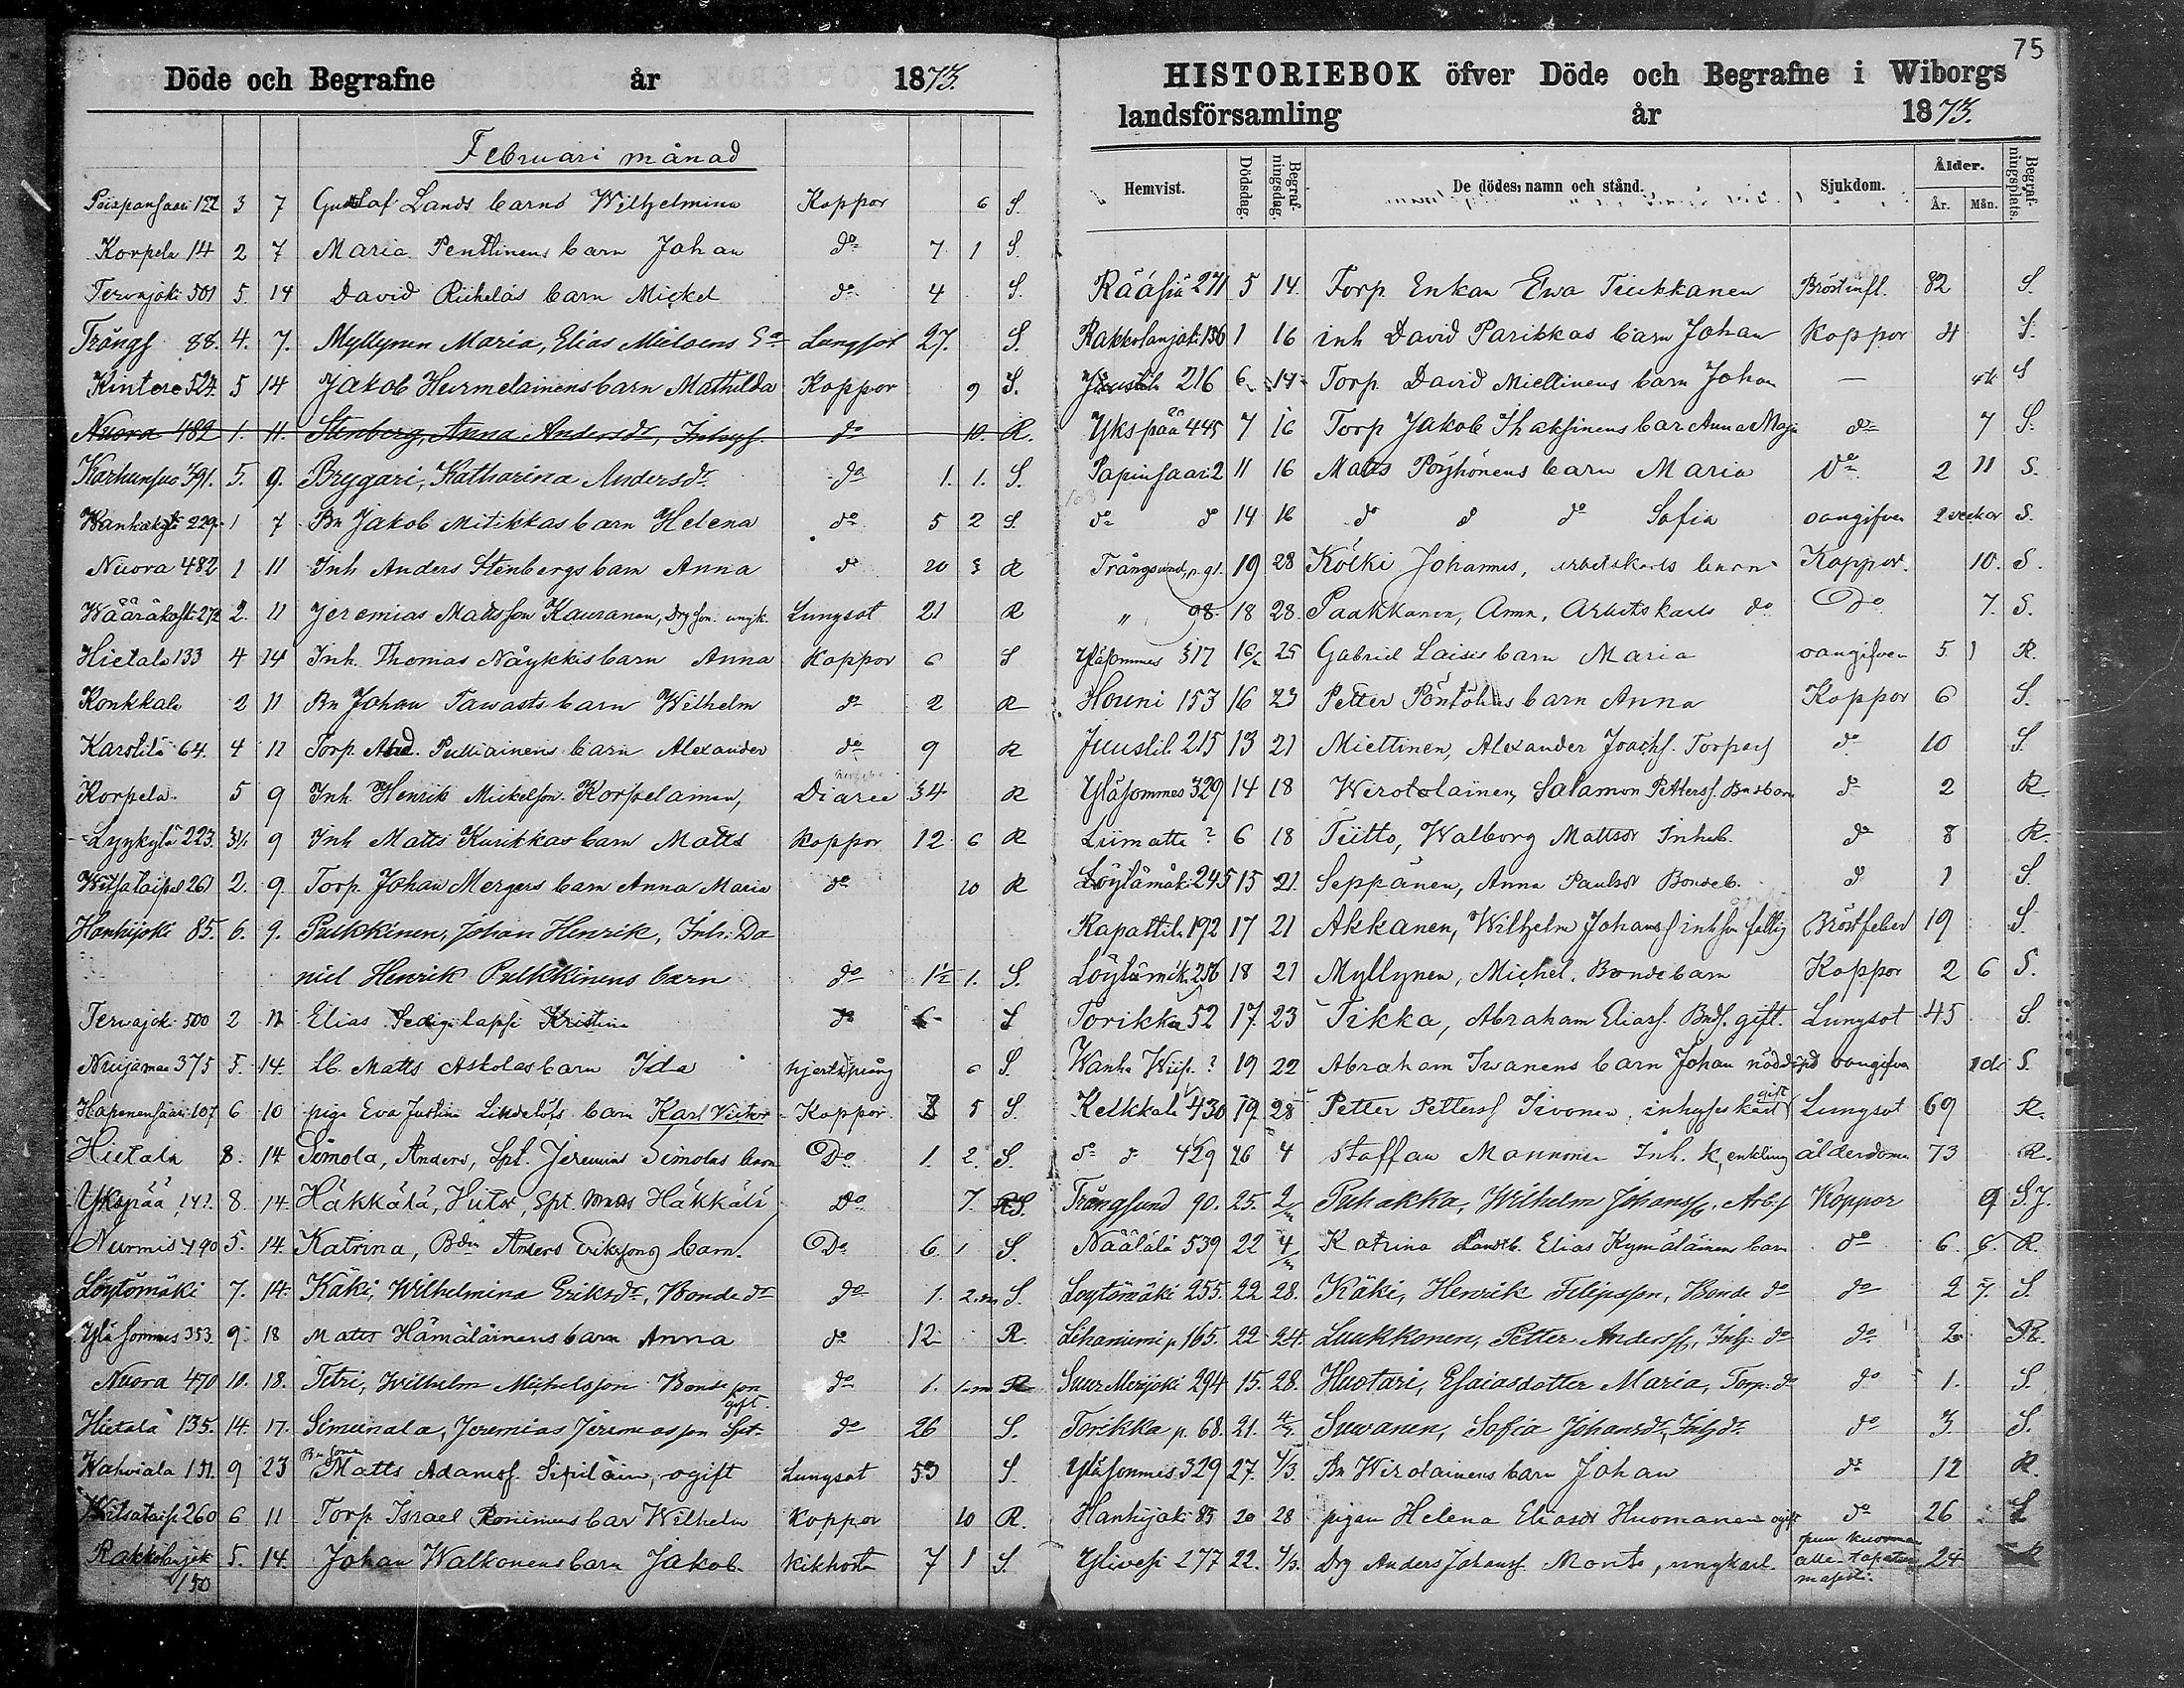 Döde och Begrafne år 1873.
Februari månad
122 3 7 Gustaf Lands barn Wilhelmina Koppor 6 S.
Korpela 14 2 7 Maria Penttinens barn Johan do 7 1 S.
Tervajoki 501 5. 14 David Riihelás barn Mickel do 4 S.
Trångs 88. 4. 7. Myllynen Maria, Elias Lungsot 27. S.
Kintere 524. 5 14 Jakob Hurmelainens barn Mathilda Koppor 9 S.
Nuora 482 1. 11. Stenberg, Anna Andersdr, Inhys. do 10. R.
Karhunsuo 391. 5. 9. Brygari, Katharina Andersdr do 1. 1. S.
229 1 7 Bn Jakob Mitikkas barn Helena do 5 2 S
Nuora 482 1 11 Inh Anders Stenbergs barn Anna do 20 3 R
272 2. 11 Jeremias Mattsson Kauranen, Lungsot 21 R
Hietala 133 4 14 Inh. Thomas Näykkis barn Anna Koppor 6 S
Konkkala 2 11 Bn Johan Tawasts barn Wilhelm do 2 R
Karstilä 64. 4 12 Torp. barn Alexander do 9 R
Korpela 5 9 Inh. Henrik Mickelson Korpelainen, Diaree 34 R
Lyykylä 223. 9 Inh Matts Kurikkas barn Matts Koppor 12 6 R
261 2. 9. Torp. Johan Mergers barn Anna Maria do 10 R
Hanhijoki 85. 6. 9. Pulkkinen, Johan Henrik, Inh: Da
niel Henrik Pulkkinens barn do 1½ 1. S.
Tervajok. 500 2 Elias lapsi Kristina do 6 S
Nuijamaa 375 5. 14. Matts Askolas barn Ida 6 S.
Hapenensaari 107 6 10 piga Eva Justina Lindelöfs barn Karl Victor Koppor 5 S.
Hietala 8. 14 Simola, Anders, Spt. Jeremias Simolas barn Do 1. 2. S.
Ykspää 8. 14. Häkkälä, Spt. Häkkälä Do 7. S.
Nurmis 490 5. 14. Katrina, Anders Erikssons barn. Do 6. 1 S.
Löytömäki 7. 14. Käki, Wilhelmina Eriksdr, Bonde dr do 1. 2.m S.
Yläsommes 353 9. 18 Matts Hämäläinens barn Anna do 12 R.
Nuora 470 10. 18. Petri, Wilhelm Michelsson Bonde son do 1. R
gift.
Hietala 135. 14. 17. Simunala, Jeremias Jeremiasson Spt. do 26 S.
Kahviala 131. 9 23 Matts Adamss. Sipiläin, ogift Lungsot 53 S.
260 6 11 Torp. Israel Ronimus bar Wilhelm Koppor 10 R.
5. 14. Johan Walkonens barn Jakob Kikhosta 7 1 S.
150
75
HISTORIEBOK öfver Döde och Begrafne i Wiborgs
landsförsamling år 1873.
Hemvist. Dödsdag. Begrafningsdag. De dödes namn och stånd. Sjukdom. Ålder. Begrafningsplats.
År. Mån.
271 5 14. Torp. Enkan Ewa Tiukkanen Bröstinfl. 82 S.
136 1 16 inh David Parikkas barn Johan Koppor 4 S.
Juustil. 216 6 14 Torp. David Miettinens barn Johan — S
Ykspää 445 7 16 Torp Jakob Ihaksinens bar Anna Maja do 7 S.
Papinsaari 2 11 16 Matts Pöyhönens barn Maria do 2 11 S.
do do 14 16 do do do Sofia oangifven 2 veckor S.
19 28 Kölki Johannes, arbetskarls barn Koppor. 10. S.
" 98. 18 28. Paakkanen, Anna, Arbetskarls do Do 7. S.
Yläsommes 317 25 Gabriel Laisis barn Maria oangifven 5 1 R.
Houni 153 16 23 Petter barn Anna Koppor 6 S.
Juustil. 215 13 21 Miettinen, Alexander Joachs. Torpars do 10 S.
Yläsommes 329 14 18 Wirotolainen, Salamon Petterss. do 2 R.
Liimatta ? 6 18 Tiitto, Walborg Mattsdr Inhb. do 8 R.
245 15 21. Seppänen, Anna Paulsdr Bondeb. do 1 S.
Kapattil. 192 17 21 Akkanen, Wilhelm Johanss inh son fallig Bröstfeber 19 S.
256 18 21 Myllynen, Michel. Bondebarn Koppor 2 6 S.
Torikka 52 17. 23 Tikka, Abraham Eliass. gift. Lungsot 45 S.
Wanha ? 19 22 Abraham Iwanens barn Johan oangifven S.
gift
Kelkkala 430 19 28 Petter Petterss Iivonen, inhyses karl Lungsot 69 R.
do do 429 26 4 Staffan Mannonen Inh. k, enkling ålderdom 73 R.
Trångsund 90. 25. Puhakka, Wilhelm Johanss. Arb.s Koppor 9 S.
Näätälä 539 22 4 Katrina Elias Kymäläinens barn do 6. R.
Löytömäki 255. 22 28. Käki, Henrik Filipsson, Bonde do do 2 7. S.
Lihaniemi p 165. 22 24. Luukkonen, Petter Anderss, Inh do do 2 R.
Suur Merijoki 294 15. 28. Huotari, Esaiasdotter Maria, Torp. do do 1. S.
Torikka p. 68. 21. Suwanen, Sofia Johansdr, Inh dr do 3. S.
Yläsommes 329 27. 4/3. Bn Wirolainens barn Johan do 12 R.
Hanhijoki 85 20 28 pigan Helena Eliasdr Huomanen ogift do 26 S
Ylivesi 277 22. 4/3. Drg Anders Johanss. Monto, ungkarl. puun kuorman alle tapaturmasesti. 24 R